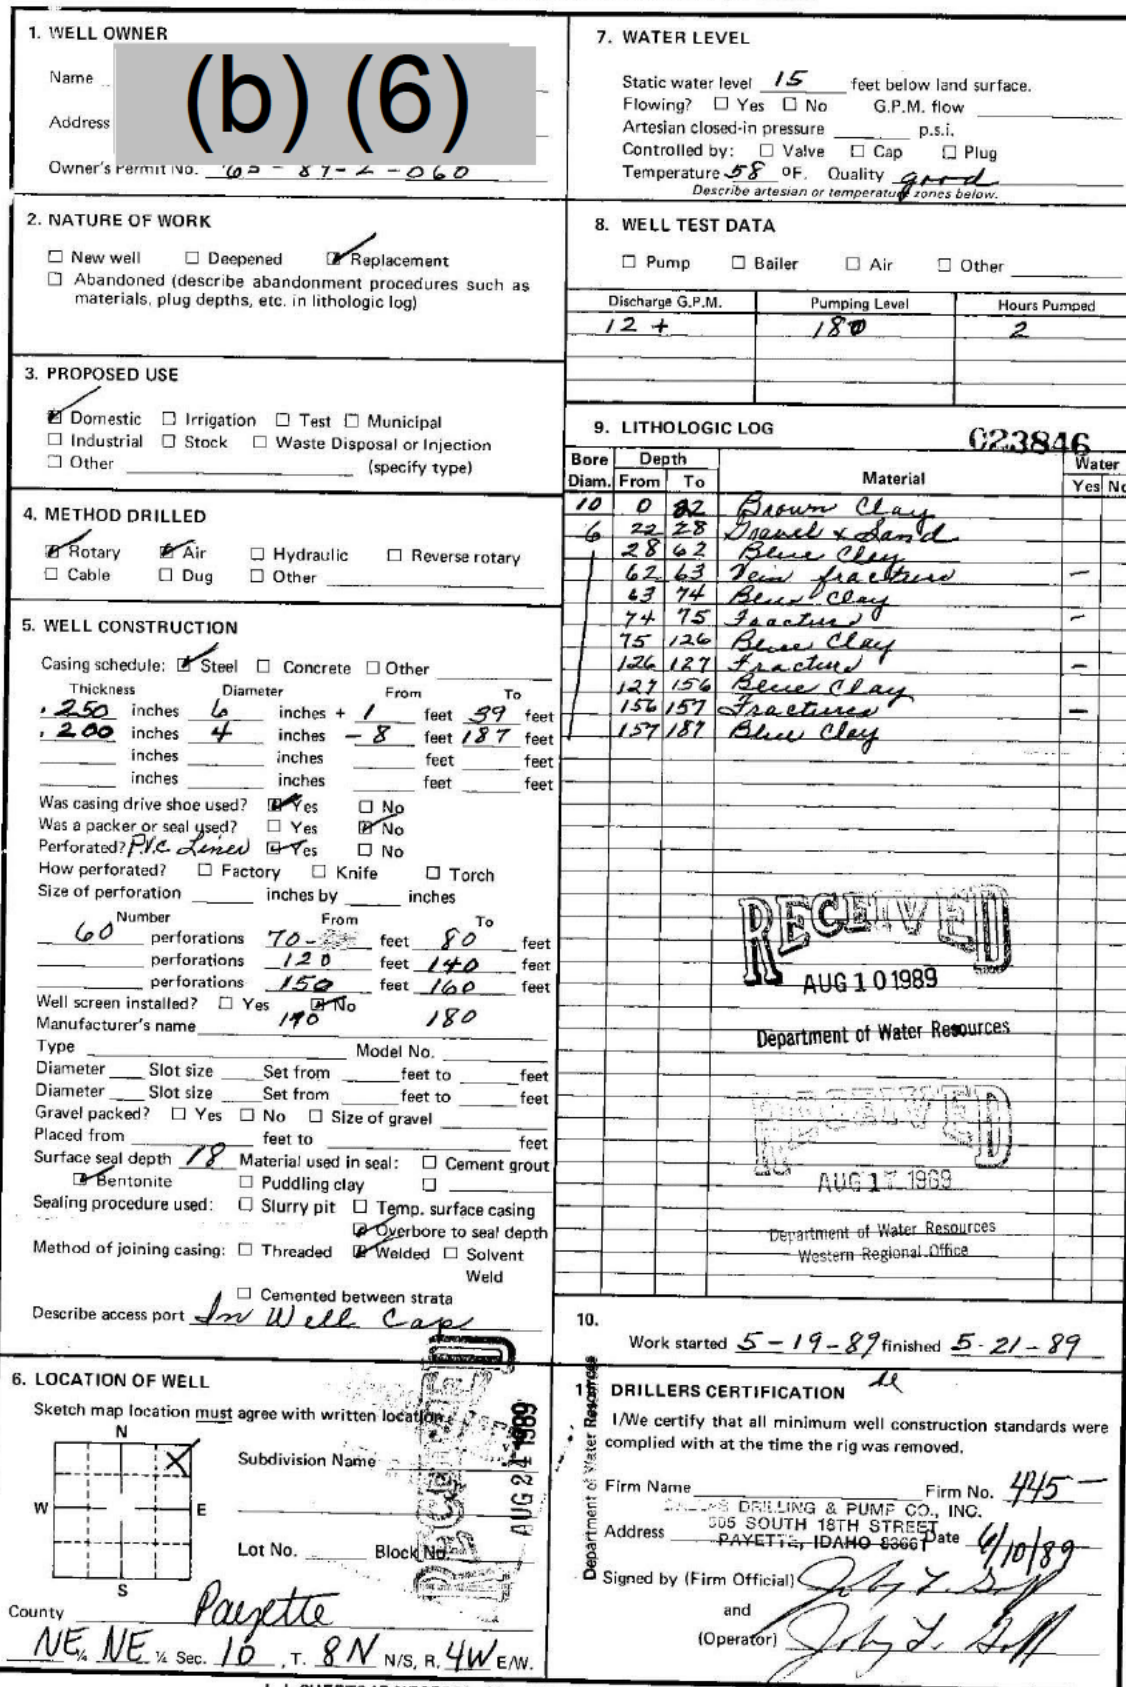 1. WELL OWNER
(b) (6)
Name
Address
Owner's Permit No. 65-89-2-060
2. NATURE OF WORK
☐ New well ☐ Deepened ☑ Replacement
☐ Abandoned (describe abandonment procedures such as
materials, plug depths, etc. in lithologic log)
3. PROPOSED USE
☑ Domestic ☐ Irrigation ☐ Test ☐ Municipal
☐ Industrial ☐ Stock ☐ Waste Disposal or Injection
☐ Other (specify type)
4. METHOD DRILLED
☑ Rotary ☑ Air ☐ Hydraulic ☐ Reverse rotary
☐ Cable ☐ Dug ☐ Other
5. WELL CONSTRUCTION
Casing schedule: ☑ Steel ☐ Concrete ☐ Other
Thickness Diameter From To
.250 inches 6 inches + 1 feet 39 feet
.200 inches 4 inches - 8 feet 187 feet
inches inches feet feet
inches inches feet feet
Was casing drive shoe used? ☑ Yes ☐ No
Was a packer or seal used? ☐ Yes ☑ No
Perforated? P.V.C Liner ☑ Yes ☐ No
How perforated? ☐ Factory ☐ Knife ☐ Torch
Size of perforation inches by inches
Number From To
60 perforations 70- feet 80 feet
perforations 120 feet 140 feet
perforations 150 feet 160 feet
Well screen installed? ☐ Yes ☑ No
Manufacturer's name 180
Type Model No.
Diameter Slot size Set from feet to feet
Diameter Slot size Set from feet to feet
Gravel packed? ☐ Yes ☐ No ☐ Size of gravel
Placed from feet to feet
Surface seal depth 18 Material used in seal: ☐ Cement grout
☑ Bentonite ☐ Puddling clay ☐
Sealing procedure used: ☐ Slurry pit ☐ Temp. surface casing
☑ Overbore to seal depth
Method of joining casing: ☐ Threaded ☑ Welded ☐ Solvent
Weld
☐ Cemented between strata
Describe access port In Well Cap
6. LOCATION OF WELL
Sketch map location must agree with written location.
N
W E
S
X
Subdivision Name
Lot No. Block No.
County Payette
NE ¼ NE ¼ Sec. 10, T. 8N N/S, R. 4W E/W.
RECEIVED
AUG 24 1989
Department of Water Resources
7. WATER LEVEL
Static water level 15 feet below land surface.
Flowing? ☐ Yes ☐ No G.P.M. flow
Artesian closed-in pressure p.s.i.
Controlled by: ☐ Valve ☐ Cap ☐ Plug
Temperature 58 °F. Quality good
Describe artesian or temperature zones below.
8. WELL TEST DATA
☐ Pump ☐ Bailer ☐ Air ☐ Other
Discharge G.P.M. Pumping Level Hours Pumped
12 + 180 2
9. LITHOLOGIC LOG 023846
Bore Depth Water
Diam. From To Material Yes No
10 0 22 Brown Clay
6 22 28 Gravel & Sand
28 62 Blue Clay
62 63 Vein fracture –
63 74 Blue Clay
74 75 Fracture –
75 126 Blue Clay
126 127 Fracture –
127 156 Blue Clay
156 157 Fractures –
157 187 Blue Clay
RECEIVED
AUG 10 1989
Department of Water Resources
RECEIVED
AUG 17 1989
Department of Water Resources
Western Regional Office
10.
Work started 5-19-89 finished 5-21-89
11. DRILLERS CERTIFICATION
I/We certify that all minimum well construction standards were
complied with at the time the rig was removed.
Firm Name Firm No. 445
DRILLING & PUMP CO., INC.
505 SOUTH 18TH STREET
Address PAYETTE, IDAHO 83661 Date 6/10/89
Signed by (Firm Official)
and
(Operator)